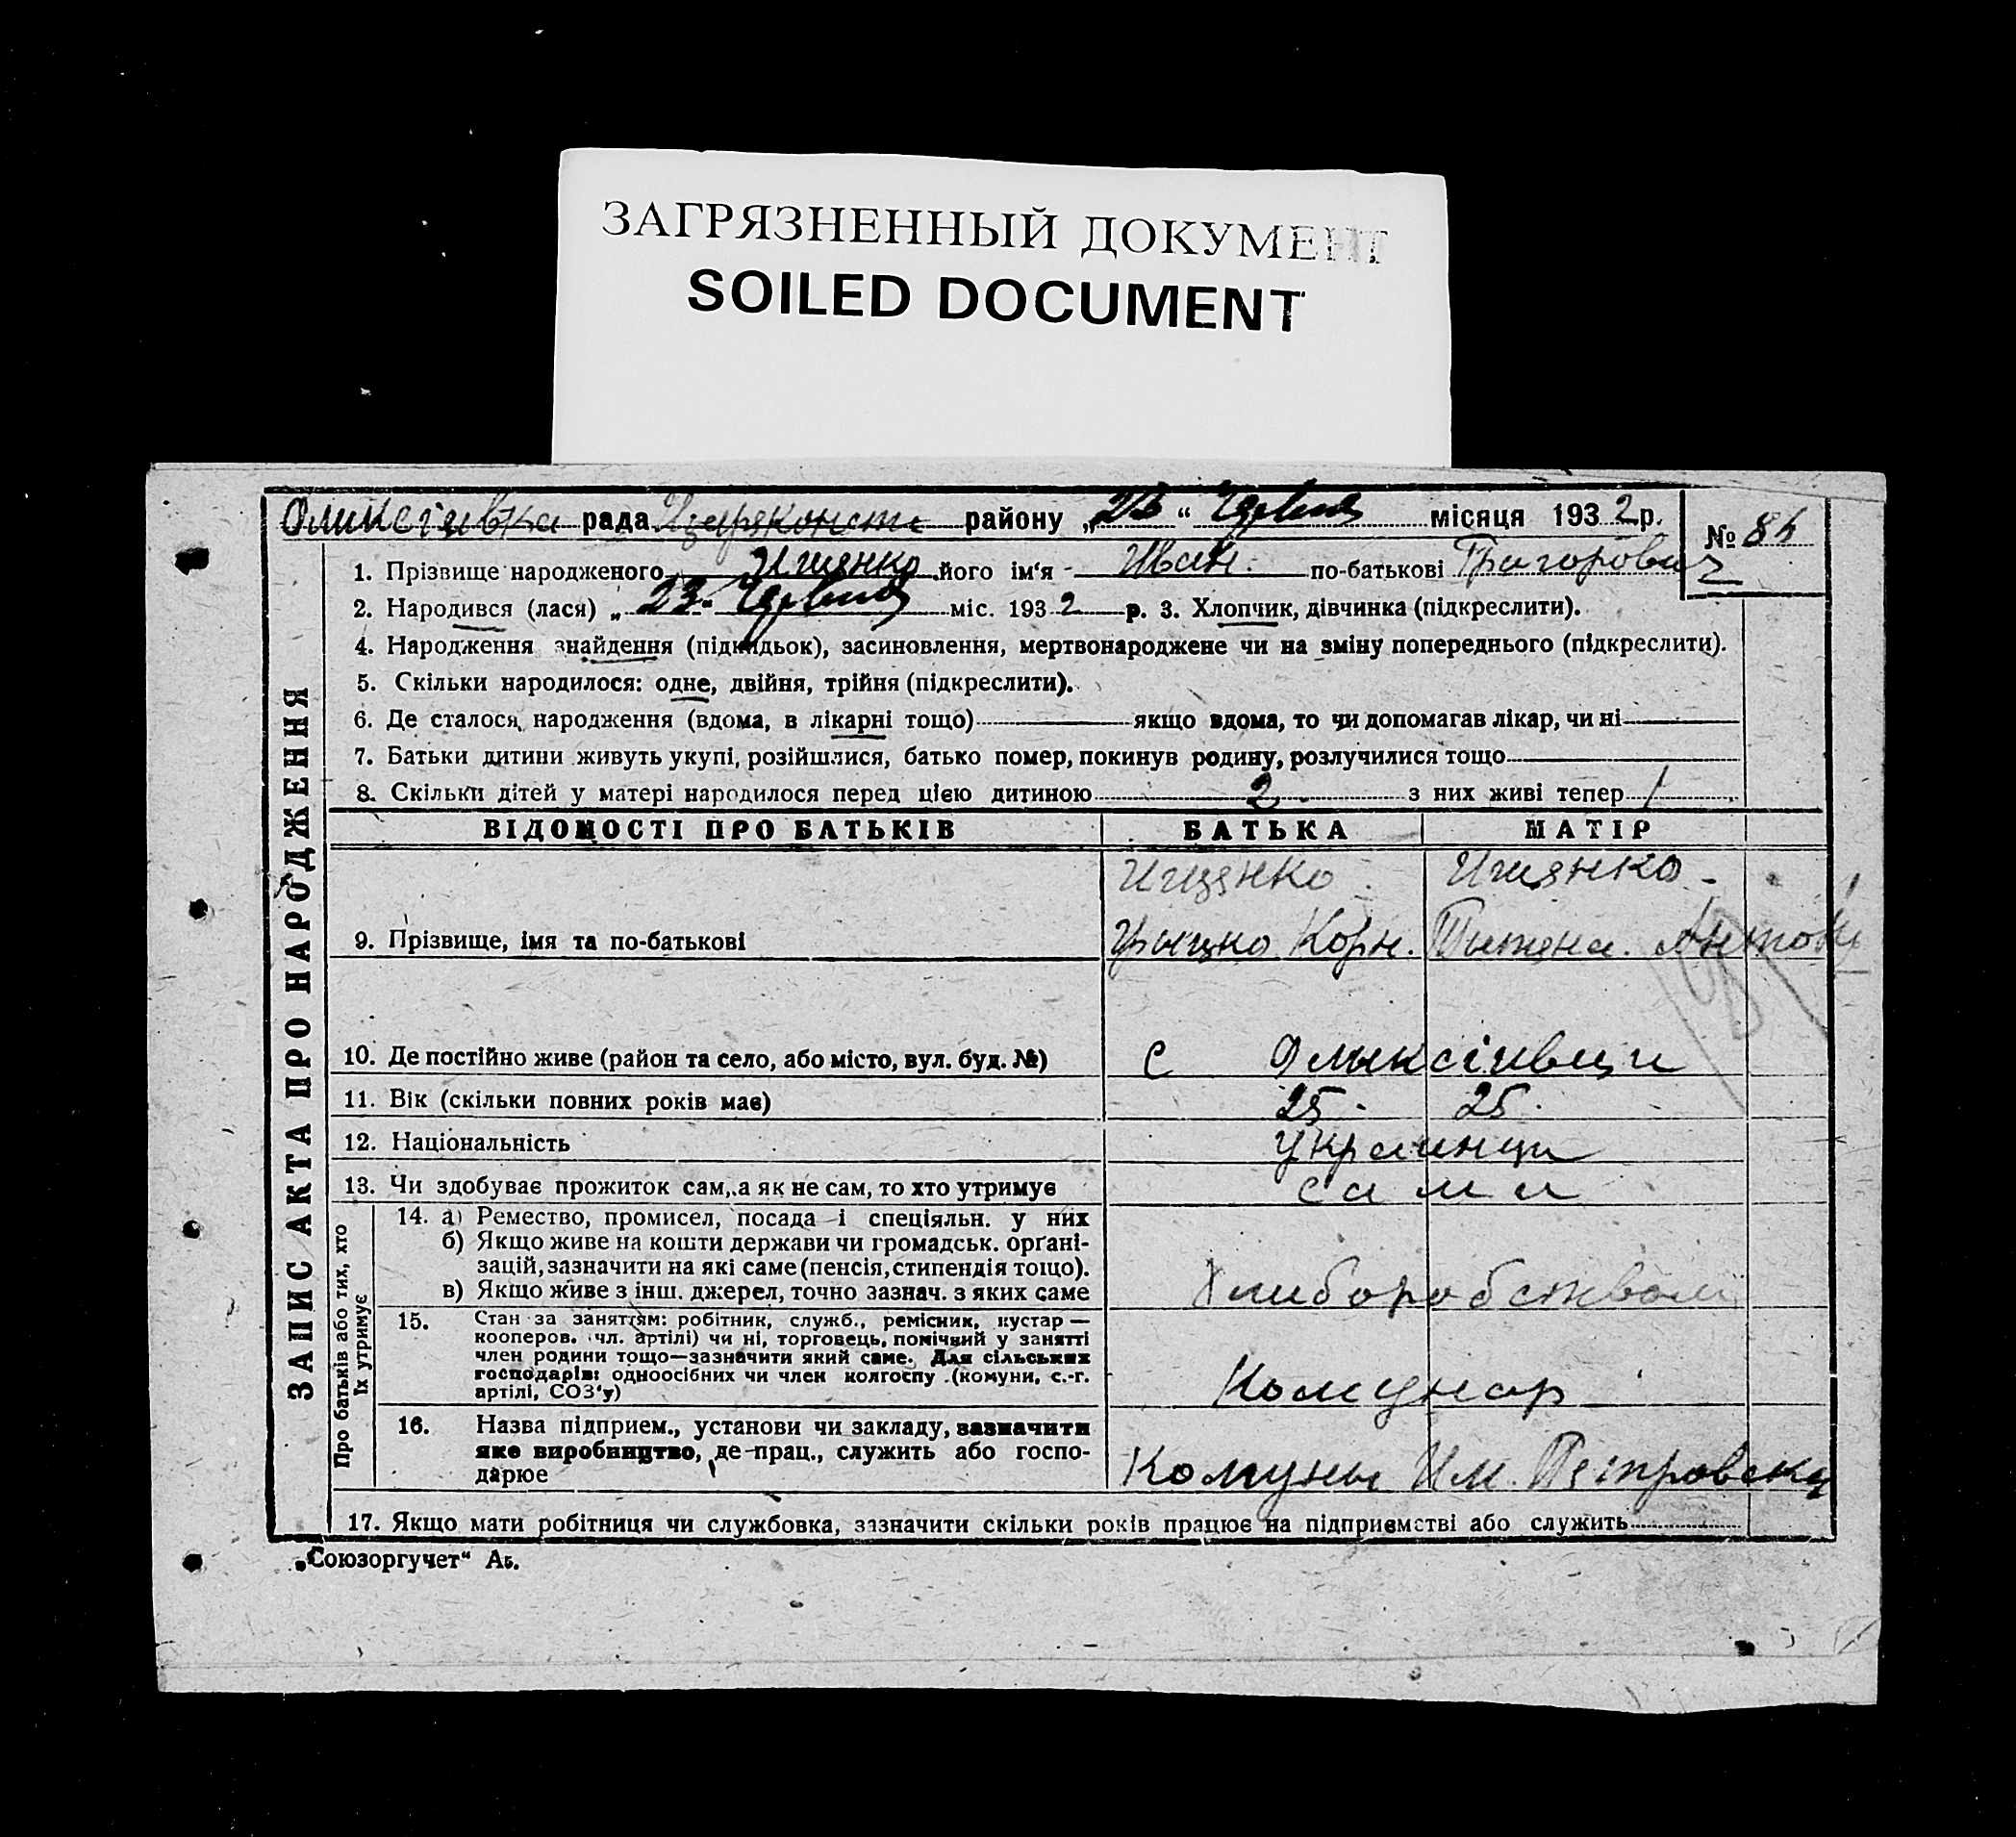 ЗАГРЯЗНЕННЫЙ ДОКУМЕНТ
SOILED DOCUMENT
рада района „ “ Червня місяця 1932 р. №
1. Прізвище народженого Ищенко його ім‘я Иван. по-батькові Григорович
2. Народився (лася) „23. Червня міс. 1932 р. 3. Хлопчик, дівчинка (підкреслити).
4. Народження знайдення (підкидьок), засиновлення, мертвонароджене чи на зміну попереднього (підкреслити).
5. Скільки народилося: одне, двійня, трійня (підкреслити).
6. Де сталося народження (вдома, в лікарні тощо) якщо вдома, то чи допомагав лікар, чи ні
7. Батьки дитини живуть укупі, розійшлися, батько помер, покинув родину, розлучилися тощо
8. Скільки дітей у матері народилося перед цією дитиною 2 з них живі тепер 1
ЗАПИС АКТА ПРО НАРОДЖЕННЯ
ВІДОМОСТІ ПРО БАТЬКІВ БАТЬКА МАТІР
Ищенко Ищенко
9. Прізвище, імя та по-батькові Грыцко Корн.
10. Де постійно живе (район та село, або місто, вул. буд. №) с
11. Вік (скільки повних років має) 25. 25.
12. Національність Украинци
13. Чи здобуває прожиток сам, а як не сам, то хто утримує сами
Про батьків або тих, хто
їх утримує
14. а) Ремество, промисел, посада і спеціяльн. у них
б) Якщо живе на кошти держави чи громадськ. органі-
зацій, зазначити на які саме (пенсія, стипендія тощо).
в) Якщо живе з інш. джерел, точно зазнач. з яких саме
15. Стан за заняттям: робітник, служб., ремісник, кустар —
кооперов. чл. артілі) чи ні, торговець, помічний у занятті
член родини тощо—зазначити який саме. Для сільських
господарів: одноосібних чи член колгоспу (комуни, с.-г.
артілі, СОЗ‘у) Комунар
16. Назва підприєм., установи чи закладу, зазначити
яке виробництво, де прац., служить або госпо-
дарює Комуны Им. Петровску
17. Якщо мати робітниця чи службовка, зазначити скільки років працює на підприємстві або служить
„Союзоргучет“ Аб.